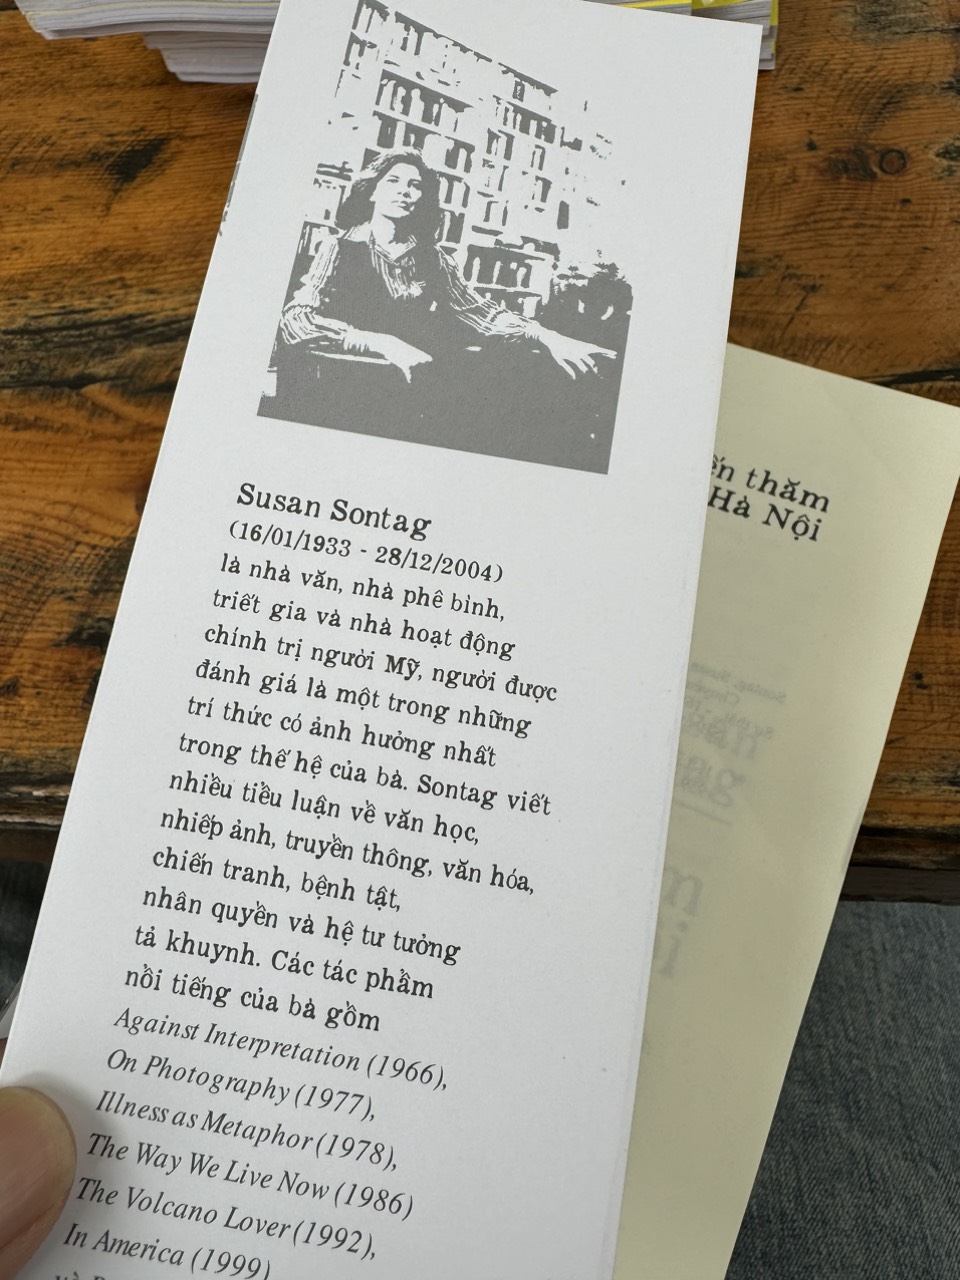 Susan Sontag
(16/01/1933 - 28/12/2004)
là nhà văn, nhà phê bình,
triết gia và nhà hoạt động
chính trị người Mỹ, người được
đánh giá là một trong những
trí thức có ảnh hưởng nhất
trong thế hệ của bà. Sontag viết
nhiều tiểu luận về văn học,
nhiếp ảnh, truyền thông, văn hóa,
chiến tranh, bệnh tật,
nhân quyền và hệ tư tưởng
tả khuynh. Các tác phẩm
nổi tiếng của bà gồm
Against Interpretation (1966),
On Photography (1977),
Illness as Metaphor (1978),
The Way We Live Now (1986)
The Volcano Lover (1992),
In America (1999)
thăm
Hà Nội